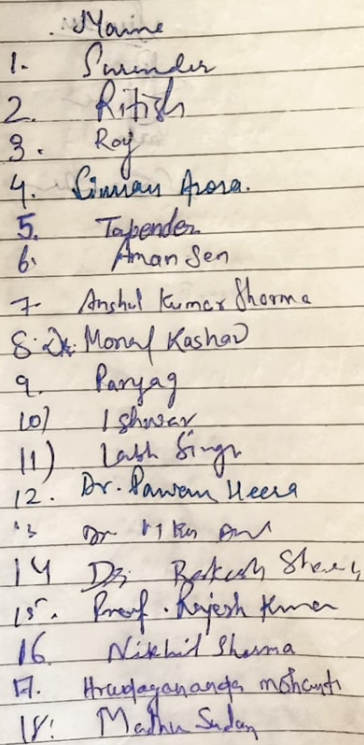 Name
1. Surinder
2. Ritish
3. Roy
4. Simran Arora.
5. Tapender
6. Aman Sen
7- Anshul Kumar Sharma
8. Dr. Kashav
9. Paryag
10) Ishwar
11) Labh Singh
12. Dr. Pawan Heera
13 Dr
14 Dr. Rakesh Sharma
15. Prof. Rajesh Kumar
16. Nikhil Sharma
17. Hrudayananda Mohanti
18. Madhu Sudan